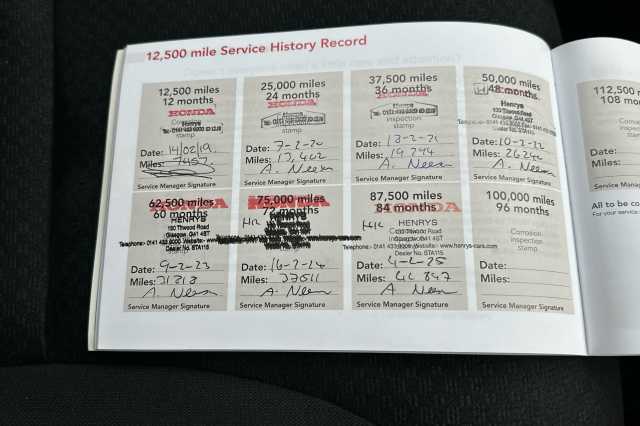 12,500 mile Service History Record
12,500 miles
12 months
HONDA
Henrys
stamp
Date: 14/02/19.
Miles: 7457.
Service Manager Signature
25,000 miles
24 months
HONDA
stamp
Date: 7-2-20
Miles: 13,402
A. Neeson
Service Manager Signature
37,500 miles
36 months
HONDA
inspection
stamp
Date: 13-2-21
Miles: 19 244
A. Neeson
Service Manager Signature
50,000 miles
48 months
Henrys
Glasgow, G41 4BT
Dealer No. BTA115
Date: 10-2-22
Miles: 26242
A. Neeson
Service Manager Signature
112,500 m
108 mo
Date:
Miles:
Service Mana
All to be co
For your service
62,500 miles
HONDA
60 months
HENRYS
Glasgow, G41 4BT
Telephone:- 0141 433 9000 Website:-
Dealer No. BTA115
Date: 9-2-23
Miles: 31318
A. Neeson
Service Manager Signature
75,000 miles
HONDA
72 months
HENRYS
Date: 16-2-24
Miles: 37511
A. Neeson
Service Manager Signature
87,500 miles
HONDA
84 months
HENRYS
Glasgow, G41 4BT
Telephone:- 0141 433 9000 Website:- www.henrys-cars.com
Dealer No. BTA115
Date: 4-2-25
Miles: 42 847
A Neeson
Service Manager Signature
100,000 miles
96 months
Corrosion
inspection
stamp
Date:
Miles:
Service Manager Signature